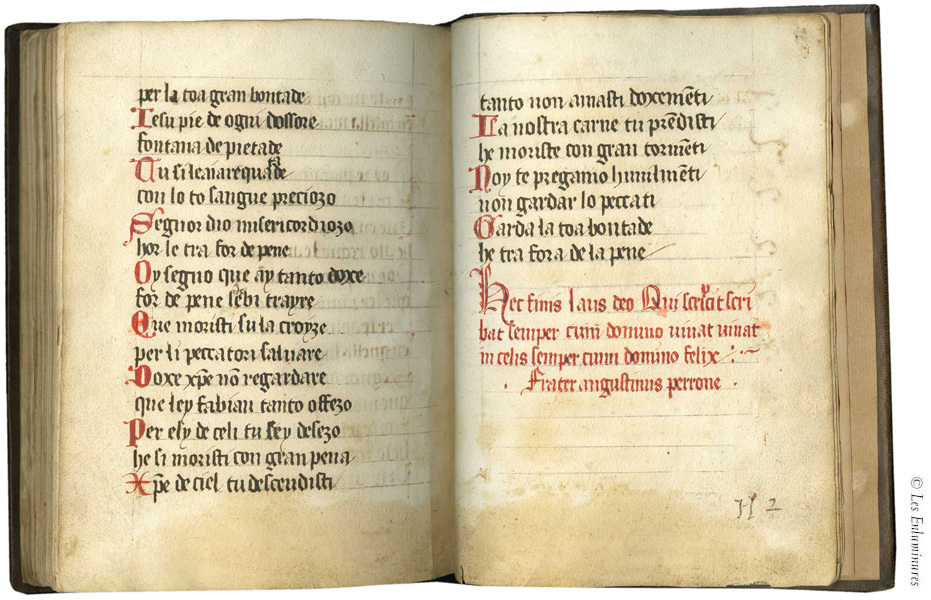 per la toa gran bontade
Iesu pie de ogni dossore
fontana de pietade
Tu si
con lo to sangue preciozo
Segnor dio misericordiozo
hor le tra for de pene
Oy segno que ay tanto doxe
for de pene sebi trayre
Que moristi su la croyze
per li peccatori saluare
Doxe xp̄e nō regardare
que ley fabian tanto offezo
Per esy de celi tu sey desezo
he si moristi con gran pena
Xp̄e de ciel tu descendisti
tanto non amasti doxemēti
La nostra carne tu prēdisti
he moriste con gran tormēti
Noy te pregamo humilmēti
non gardar lo peccati
Garda la toa bontade
he tra fora de la pene
Hec finis laus deo Qui scripcit scri
bat semper cum domino uiuat uiuat
in celis semper cum domino felix
· Frater augustinus perrone ·
2
© Les Enluminures